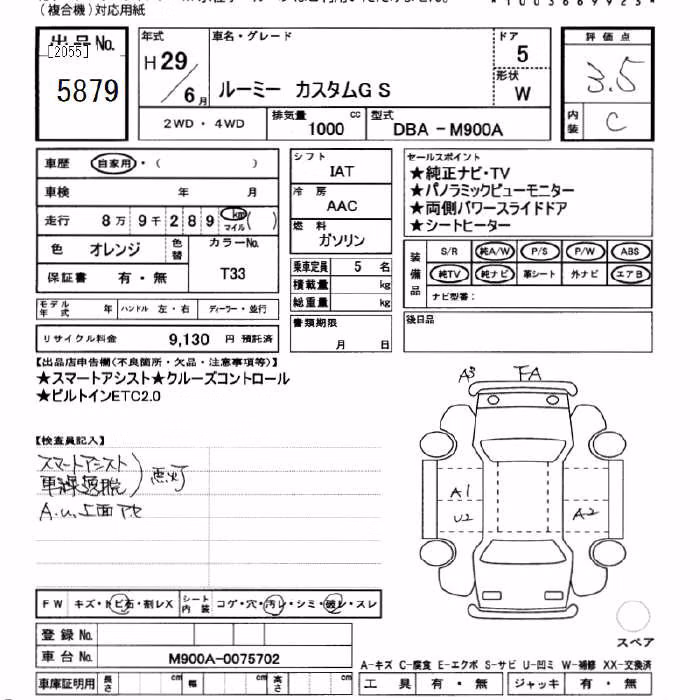 (複合機)対応用紙
*1003669923*
出品No.
[2055]
5879
年式
H 29 / 6月
車名・グレード
ルーミー カスタムG S
ドア
5
形状
W
評価点
3.5
内装
C
2WD・4WD
排気量
1000 cc
型式
DBA-M900A
車歴 自家用・( )
車検 年 月
走行 8万9千289 km マイル ( )
色 オレンジ 色替
カラーNo.
T33
保証書 有・無
モデル年式 年 ハンドル 左・右 ディーラー・並行
リサイクル料金 9,130 円 預託済
シフト
IAT
冷房
AAC
燃料
ガソリン
乗車定員 5 名
積載量 kg
総重量 kg
書類期限
月 日
セールスポイント
★純正ナビ・TV
★パノラミックビューモニター
★両側パワースライドドア
★シートヒーター
装備品
S/R 純A/W P/S P/W ABS
純TV 純ナビ 革シート 外ナビ エアB
ナビ型番:
後日品
【出品店申告欄(不良箇所・欠品・注意事項等)】
★スマートアシスト★クルーズコントロール
★ビルトインETC2.0
【検査員記入】
スマートアシスト
車線逸脱
悪灯
A.u.上面
A3 FA
A1
U2
A2
FW キズ・トビ石・割レX シート内装 コゲ・穴・汚レ・シミ・破レ・スレ
登録No.
車台No. M900A-0075702
車庫証明用 長さ cm 幅 cm 高さ cm
スペア
A-キズ C-腐食 E-エクボ S-サビ U-凹ミ W-補修 XX-交換済
工具 有・無 ジャッキ 有・無